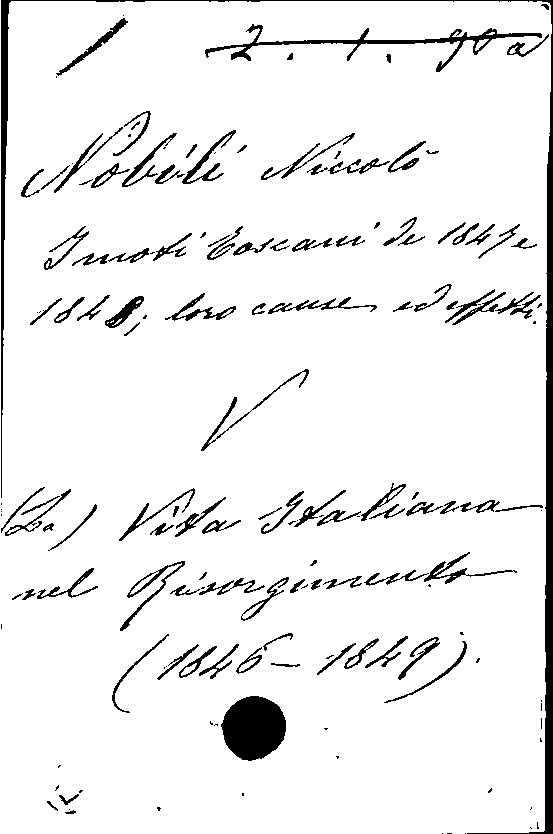 1 2. 1. 90 a
Nobili Niccolò
I moti Toscani de 1847 e
1848; loro cause ed effetti.
V
(La) Vita Italiana
nel Risorgimento
(1846-1849).